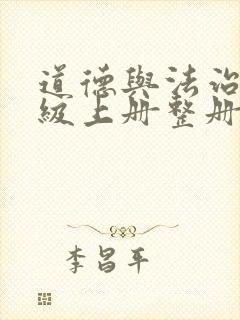 道德與法治
級上册整册
李昌平